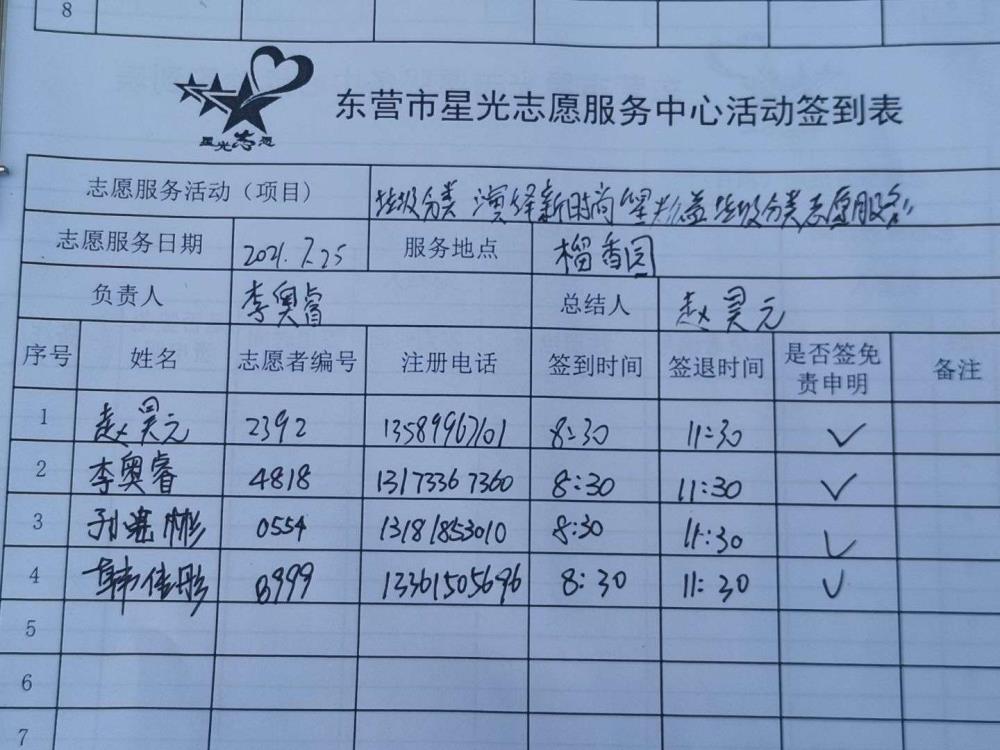 8
星光志愿
东营市星光志愿服务中心活动签到表
志愿服务活动（项目） 垃圾分类 演绎新时尚 垃圾分类志愿服务
志愿服务日期 2021.7.25 服务地点 榴香园
负责人 李奥睿 总结人 赵昊元
序号 姓名 志愿者编号 注册电话 签到时间 签退时间 是否签免责申明 备注
1 赵昊元 2392 13589967101 8:30 11:30 ✓
2 李奥睿 4818 13173367360 8:30 11:30 ✓
3 孙 彬 0554 13181853010 8:30 11:30 ✓
4 韩佳彤 8999 13361505696 8:30 11:30 ✓
5
6
7